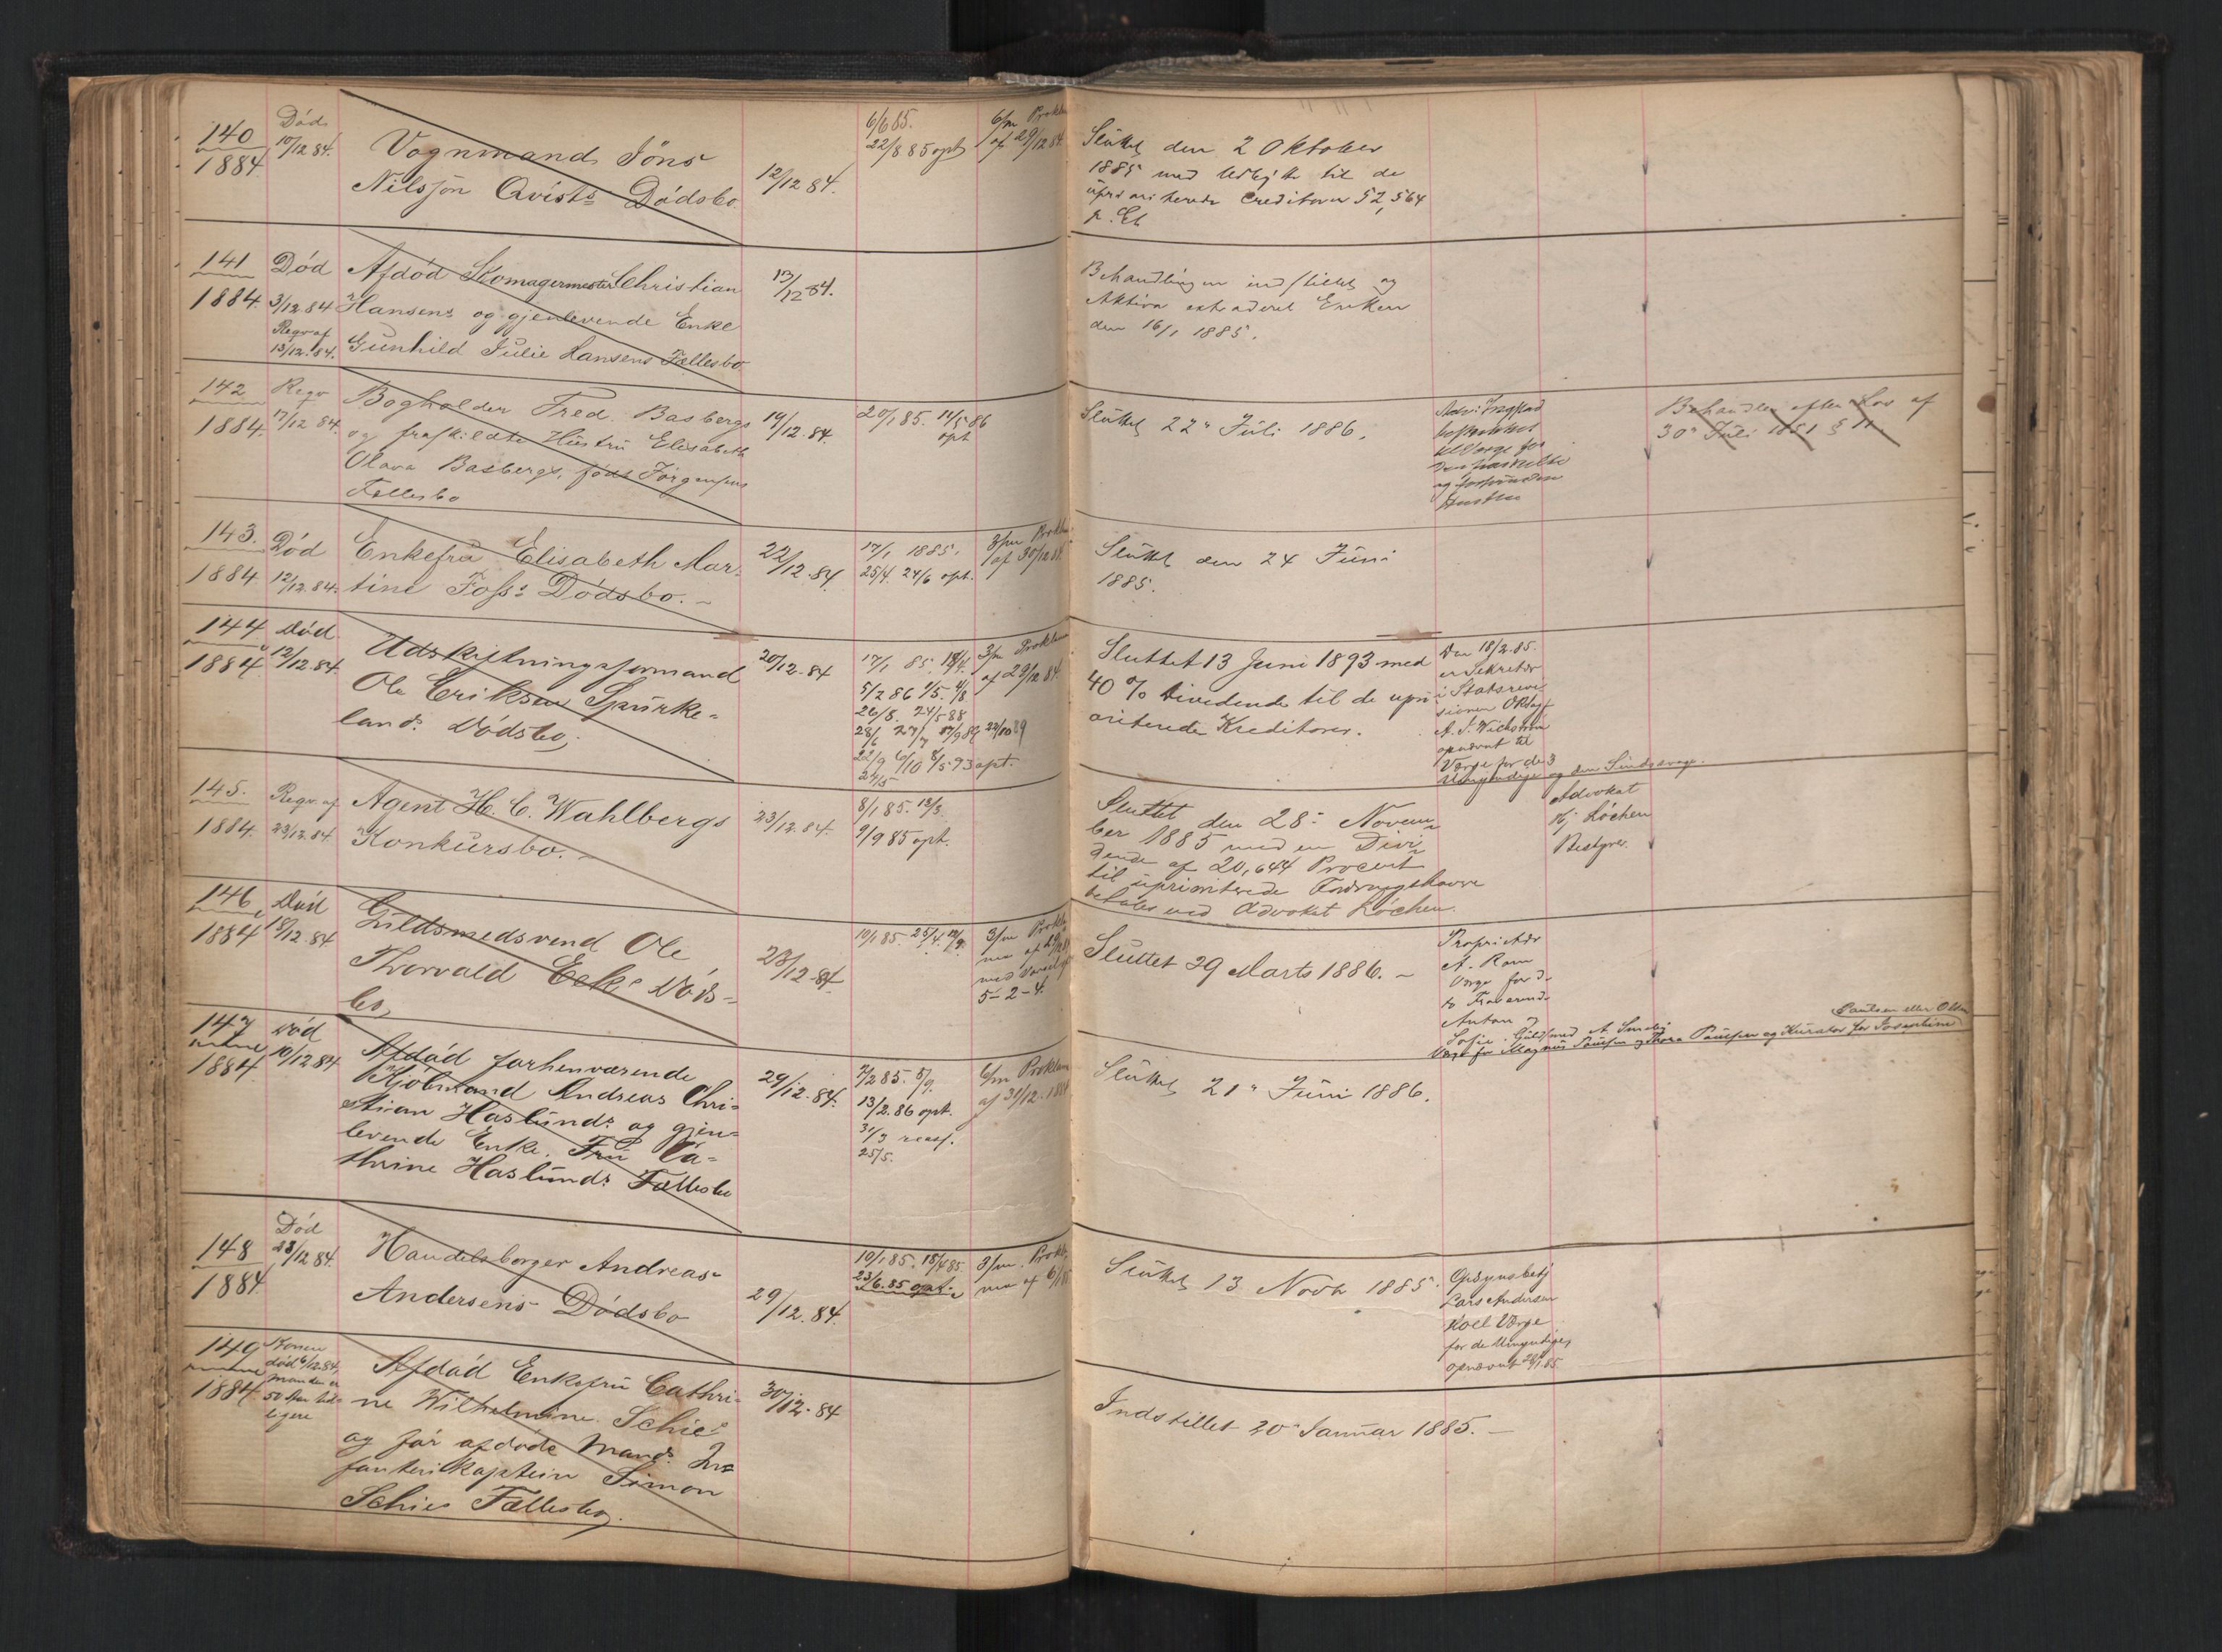 140
1884
Død
10/12 84.
Vognmand Jöns
Nilssön Qvists Dødsbo
12/12 84.
6/6 85.
22/8 85 opt
6/m Prokla
af 29/12 84
Sluttet den 2 Oktober
1885 med Udbytte til de
uprioriterede Creditorer 52,564
p. Ct
141
1884
Død
3/12 84
Regv af
13/12 84.
Afdød Skomagermester Christian
Hansens og gjenlevende Enke
Gunhild Julie Hansens Fællesbo
13/12 84.
Behandlingen indstillet og
Aktiva extraderet Enken
den 16/1 1885.
142
1884.
Regv
17/12 84.
Bogholder Fred. Basbergs
og fraskildte Hustru Elisabeth
Olava Basbergs, født Jørgensens
Fællesbo
19/12 84.
20/1 85. 14/5 86
opt
Sluttet 22 Juli 1886.
Adv: Ingstad
beskikket
til Værge for
den fraskilte
og forsvundne
Hustru
Behandles efter Lov af
30 Juli 1851 § 11.
143.
1884
Død
12/12.84.
Enkefru Elisabeth Mar-
tine Foss's Dødsbo.
22/12 84.
17/1 1885.
25/4. 24/6 opt.
3/m Prokla
af 30/12 84
Sluttet den 24 Juni
1885.
144
1884.
Død
12/12.84.
Udskiftningsformand
Ole Eriksen Spürke-
lands Dødsbo.
20/12.84
17/1 85. 18/4.
5/2 86 1/5. 4/8
26/8. 24/5 88
28/6 27/7 17/9 86 22/10 89
22/9 6/10 8/5 93 opt.
24/5
3/m Proklam
af 29/12 84.
Sluttet 13 Juni 1893 med
40 % Dividende til de upri-
oriterede Kreditorer.
Den 18/2.85.
er Sekretær
i Statsrevi-
sionen
A. T. Wichstrøm
opnævnt til
Værge for de 3
Umyndige og den Sindssvage.
145.
1884.
Regv. af
23/12.84
Agent H. C. Wahlbergs
Konkursbo.
23/12.84.
8/1 85. 13/3.
9/9 85 opt.
Sluttet den 28 Novem-
ber 1885 med en Divi-
dende af 20,644 Procent
til uprioriterede Fordringshavere
betales ved Advokat Løchen.
Advokat
Hj Løchen
Bestyrer.
146
1884
Død
18/12.84
Guldsmedsvend Ole
Thorvald Eeks Døds-
bo,
23/12.84
10/1 85. 25/4.
3/m Prokla
ma af 29/12 84
med Varsel
5-2-4.
Sluttet 29 Marts 1886.
Proprietær
A. Ram
Værge for de
to Fraværende
Anton og
Sofie. Guldsmed A. Smeby
Værge for Magnus Paulsen og Thora Paulsen og Kurator for Josephine
Paulsen eller Olsen
147
1884
Død
10/12 84
Afdød forhenværende
Kjøbmand Andreas Chri-
stian Haslunds og gjen-
levende Enke, Fru Ca-
thrine Haslunds Fællesbo
29/12.84.
7/2 85. 5/9.
13/2.86 opt.
31/3 reass.
25/5.
6/m Proklam
af 31/12.1884
Sluttet 21 Juni 1886.
148
1884
Død
23/12 84.
Handelsborger Andreas
Andersens Dødsbo
29/12.84.
10/1 85. 18/4 85.
23/6.85 opt.
3/m. Prokla
ma af 6/1 85
Sluttet 13 Novbr 1885.
Opsynsbetj
Lars Andersen
Koll Værge
for de Umyndige,
opnævnt 28/1 85.
149
1884
Konen
død 6/12.84.
Manden er
50 Aar tid-
ligere
Afdød Enkefru Cathri-
ne Wilhelmine Schies
og før afdøde Mands In-
fanterikaptein Simon
Schies Fællesbo.
30/12.84
Indstillet 20 Januar 1885.